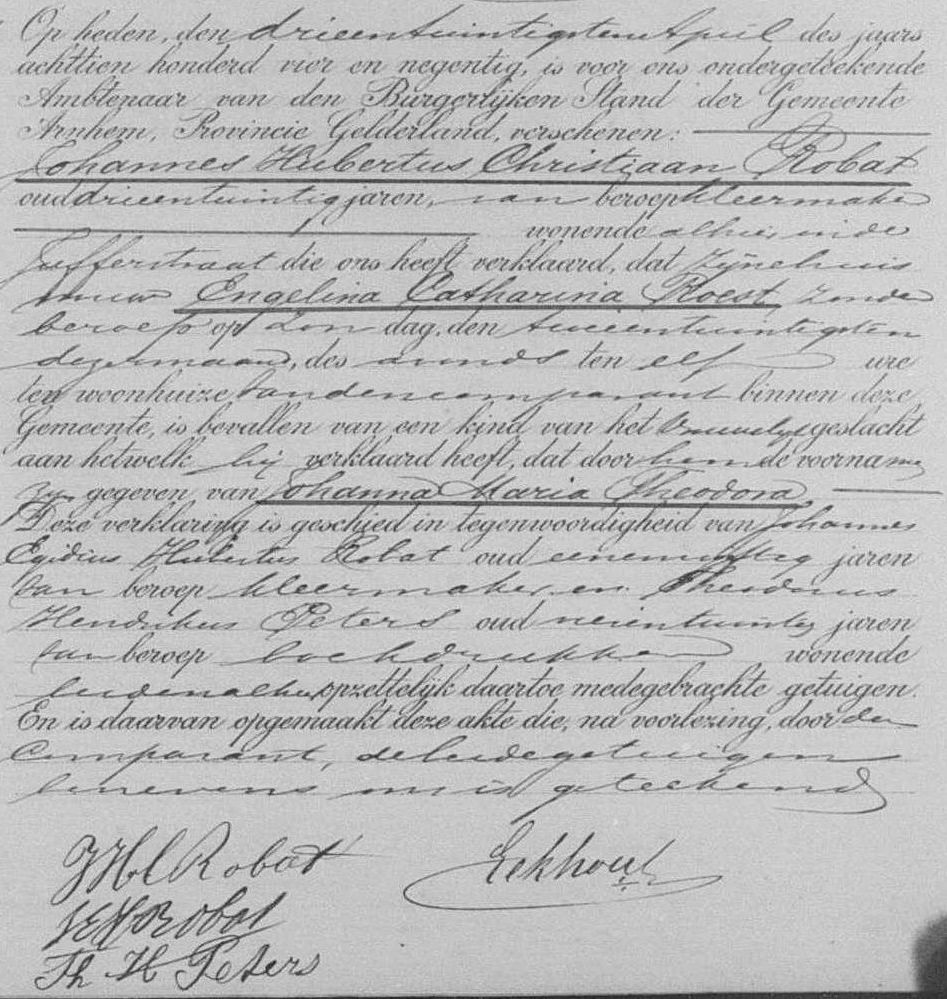 Op heden, den drieentwintigsten April des jaars
achttien honderd vier en negentig, is voor ons ondergeteekende
Ambtenaar van den Burgerlijken Stand der Gemeente
Arnhem, Provincie Gelderland, verschenen:
Johannes Hubertus Christiaan Robat
oud drieentwintig jaren, van beroep kleermaker
wonende alhier, in de
Jufferstraat die ons heeft verklaard, dat zijne huis
vrouw Engelina Catharina Roest, zonder
beroep op Zon dag, den tweeentwintigsten
dezer maand, des avonds ten elf ure
ten woonhuize van den comparant binnen deze
Gemeente, is bevallen van een kind van het vrouwelijk geslacht
aan hetwelk hij verklaard heeft, dat door hem de voornamen
zijn gegeven van Johanna Maria Theodora.
Deze verklaring is geschied in tegenwoordigheid van Johannes
Egidius Hubertus Robat oud eenenvijftig jaren
van beroep kleermaker, en Theodorus
Hendrikus Peters oud vierentwintig jaren
van beroep boekdrukker wonende
beiden alhier, opzettelijk daartoe medegebrachte getuigen.
En is daarvan opgemaakt deze akte die, na voorlezing, door den
Comparant, de beide getuigen
benevens ons is geteekend
JHC Robat Eekhout
JEH Robat
Th H Peters